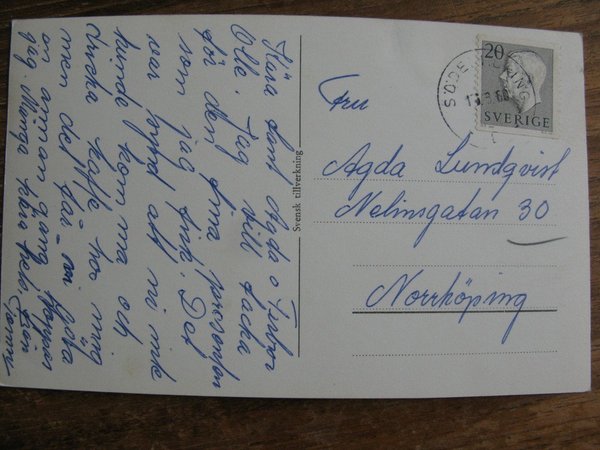 Kära fast Agda o Farbror
Olle. Jag vill tacka
för den fina presenten
som jag fick. Det
var synd att ni inte
kunde komma och
dricka kaffe hos mig
men det får vi
en annan gång hoppas
jag. Många kära häls från
Tommy
Svensk tillverkning
20
SVERIGE
SÖDERKÖPING
Fru
Agda Lundqvist
Nelinsgatan 30
Norrköping